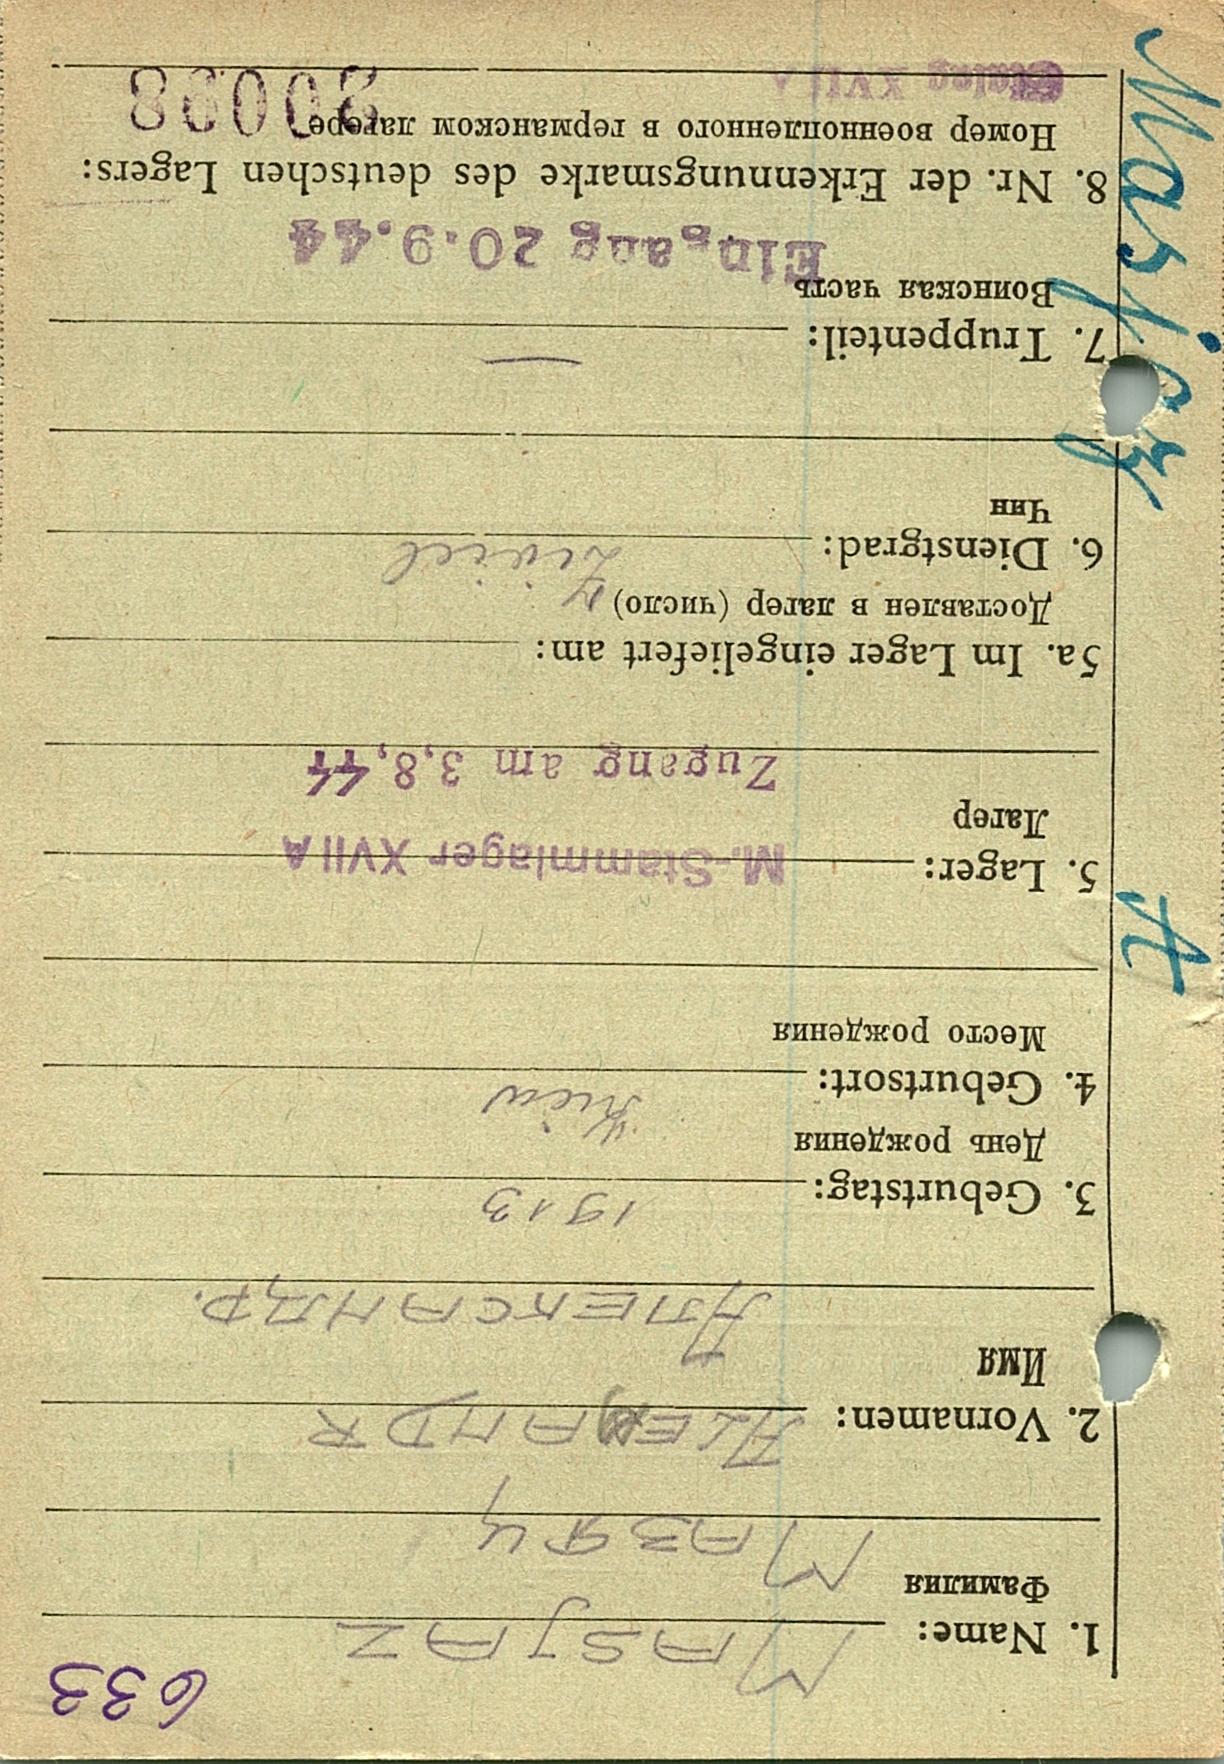 633
1. Name: MASJAZ
Фамилия МАЗЯЦ
2. Vornamen: ALEXANDR
Имя АЛЕКСАНДР.
3. Geburtstag: 1913
День рождения
4. Geburtsort: Kiew
Место рождения
5. Lager: M.-Stammlager XVII A
Лагер
Zugang am 3,8,44
5a. Im Lager eingeliefert am:
Доставлен в лагер (число)
6. Dienstgrad: Zivil
Чин
7. Truppenteil: —
Воинская часть
Eingang 20.9.44
8. Nr. der Erkennungsmarke des deutschen Lagers:
Номер военнопленного в германском лагере
20098
Stalag XVII A
Masjaz A